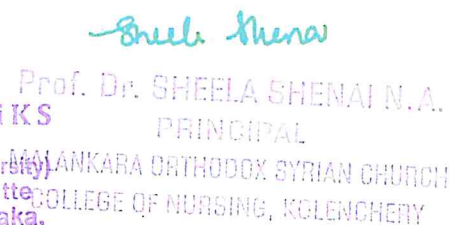 Sheela Shenai
Prof. Dr. SHEELA SHENAI N.A.
i K S
PRINCIPAL
rsity)
MALANKARA ORTHODOX SYRIAN CHURCH
tte
COLLEGE OF NURSING, KOLENCHERY
aka.